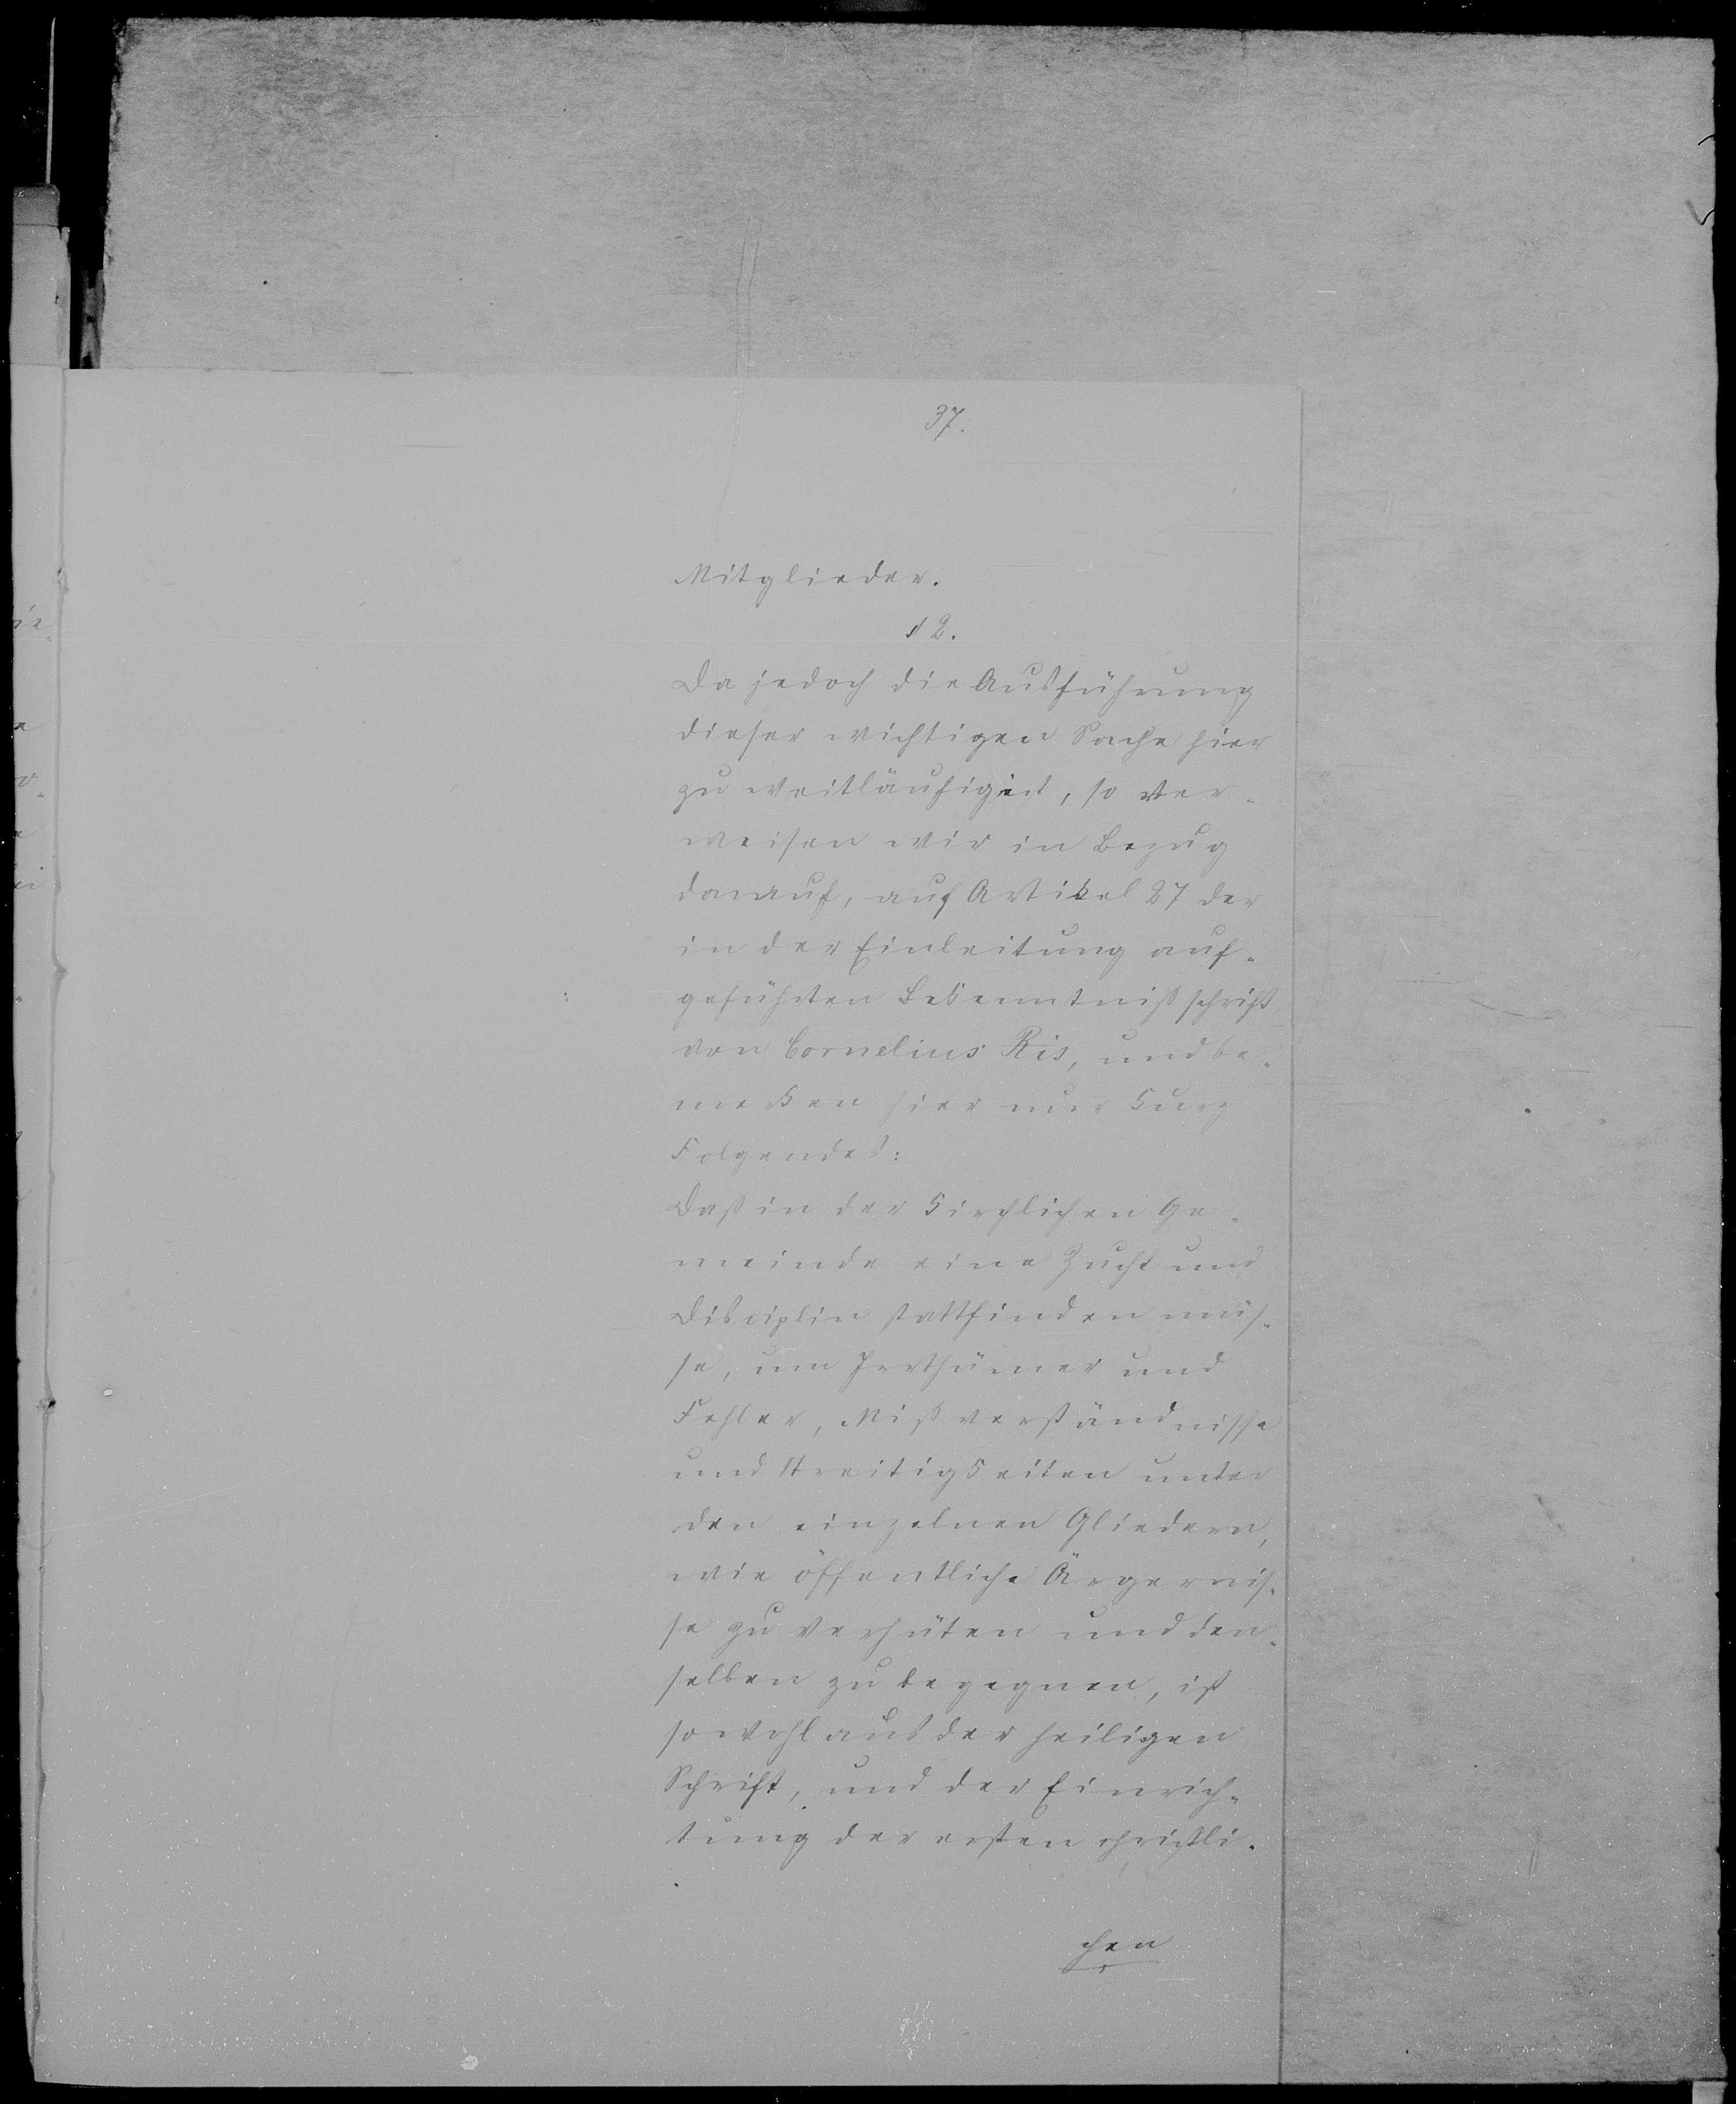 37.
Mitglieder.
§ 2.
Da jedoch die Ausführung
dieser wichtigen Sache hier
zu weitläufig ist, so ver-
weisen wir in Bezug
darauf, auf Artikel 27 der
in der Einleitung auf-
geführten Bekenntnißschrift
von Cornelius Ris, und be-
merken hier nur kurz
Folgendes:
Daß in der kirchlichen Ge-
meinde eine Zucht und
Disciplin stattfinden müs-
se, um Irrthümer und
Fehler, Mißverständnisse
und Streitigkeiten unter
den einzelnen Gliedern,
wie öffentliche Ärgernis-
se zu verhüten und den-
selben zu begegnen, ist
sowohl aus der heiligen
Schrift, und der Einrich-
tung der ersten christli-
chen